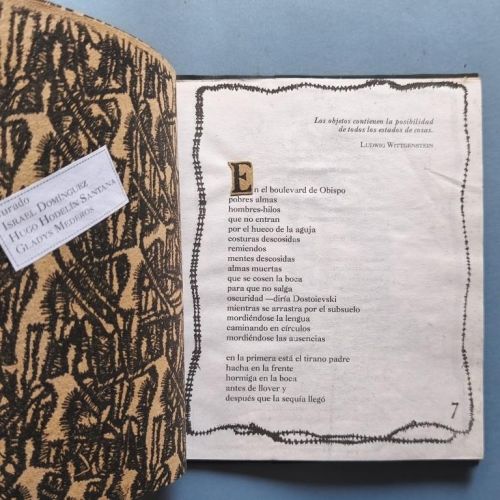 urado
ISRAEL DOMÍNGUEZ
HUGO HODELÍN SANTANA
GLADYS MEDEROS
Los objetos contienen la posibilidad
de todos los estados de cosas.
LUDWIG WITTGENSTEIN
En el boulevard de Obispo
pobres almas
hombres-hilos
que no entran
por el hueco de la aguja
costuras descosidas
remiendos
mentes descosidas
almas muertas
que se cosen la boca
para que no salga
oscuridad —diría Dostoievski
mientras se arrastra por el subsuelo
mordiéndose la lengua
caminando en círculos
mordiéndose las ausencias
en la primera está el tirano padre
hacha en la frente
hormiga en la boca
antes de llover y
después que la sequía llegó
7